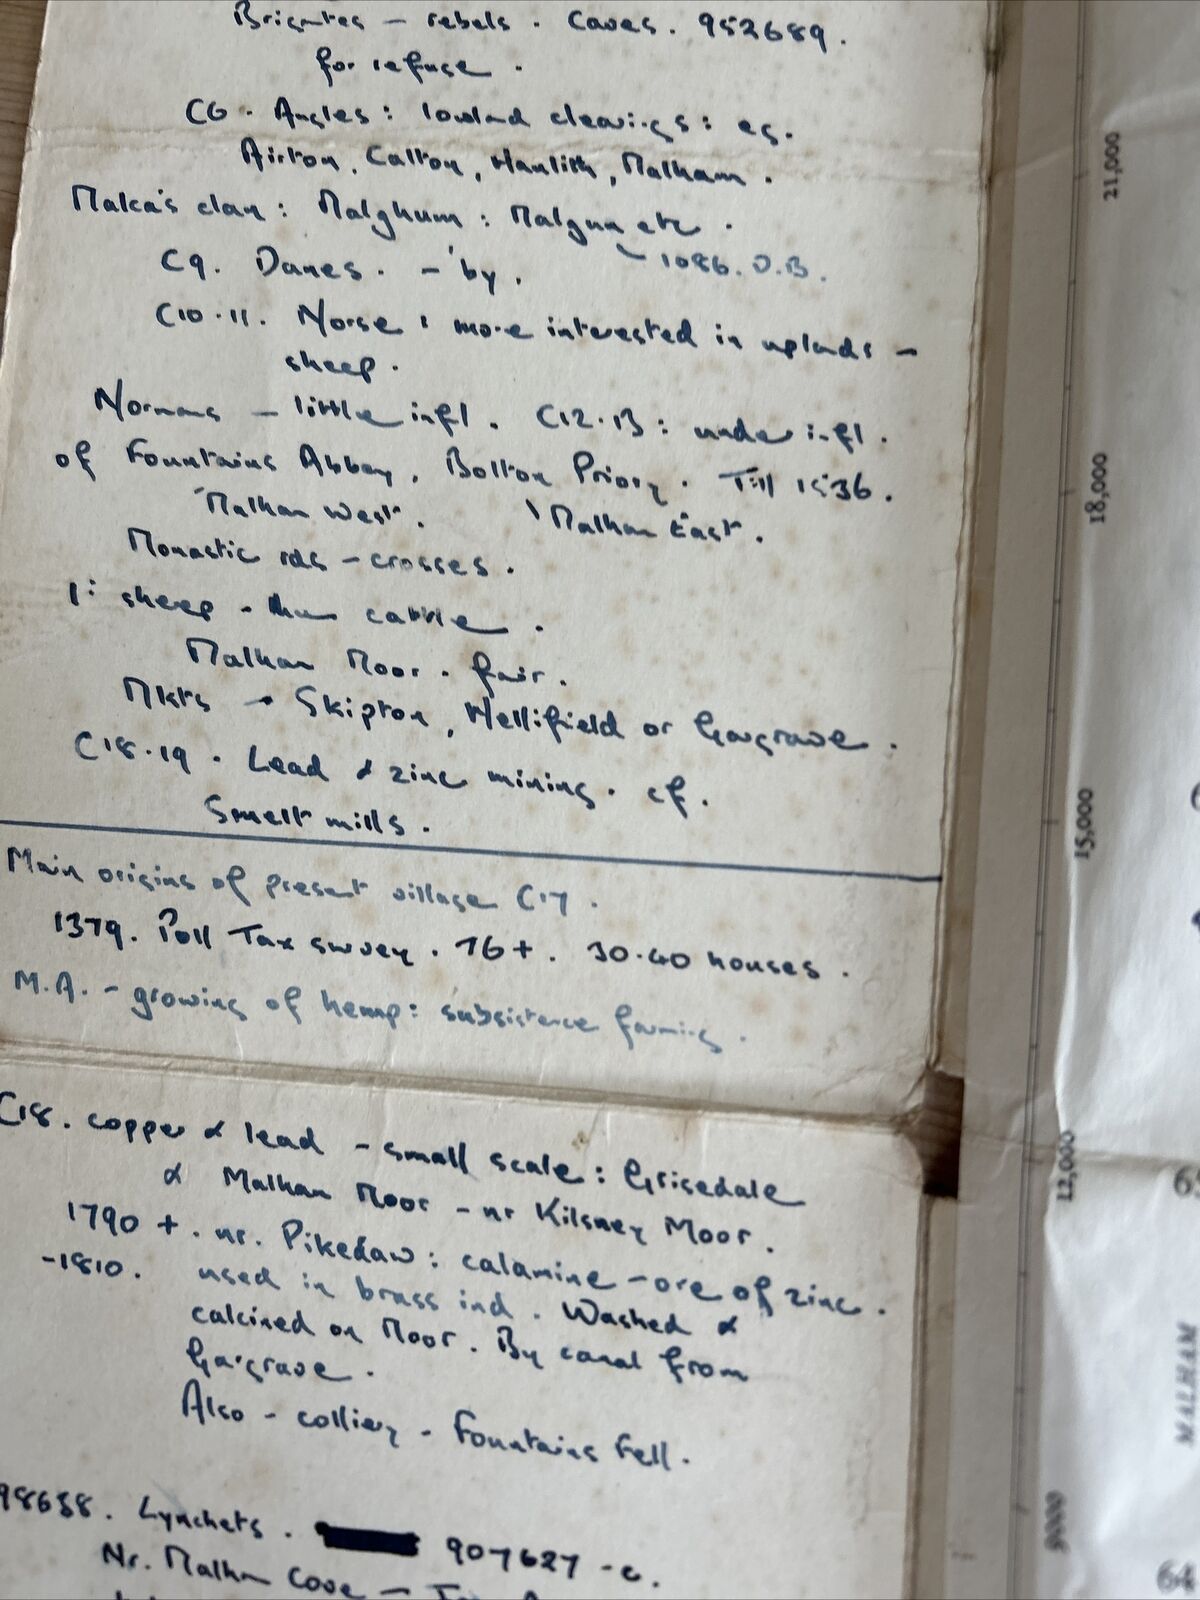 Brigantes – rebels. Caves. 952689.
for refuge.
C6. Angles: lowland clearings: eg.
Airton, Calton, Hanlith, Malham.
Malca's clan: Malghum: Malgun etc.
1086. D.B.
C9. Danes. – 'by.
C10.11. Norse: more interested in uplands –
sheep.
Normans – little infl. C12.13: under infl.
of Fountains Abbey, Bolton Priory. Till 1536.
'Malham West'. 'Malham East'.
Monastic rds – crosses.
1: sheep – than cattle.
Malham Moor. fair.
Mkts → Skipton, Hellifield or Gargrave.
C18.19. Lead & zinc mining. cf.
Smelt mills.
Main origins of present village C17.
1379. Poll Tax survey. 76+. 30.40 houses.
M.A. – growing of hemp: subsistence farming.
C18. copper & lead – small scale: Grisedale
& Malham Moor – nr Kilnsey Moor.
1790+. nr. Pikedaw: calamine – ore of zinc.
-1810. used in brass ind. Washed &
calcined on Moor. By canal from
Gargrave.
Also – colliery – Fountains Fell.
Lynchets. 907627 -c.
Nr. Malham Cove –
21,000
18,000
15,000
12,000
9000
MALHAM
64